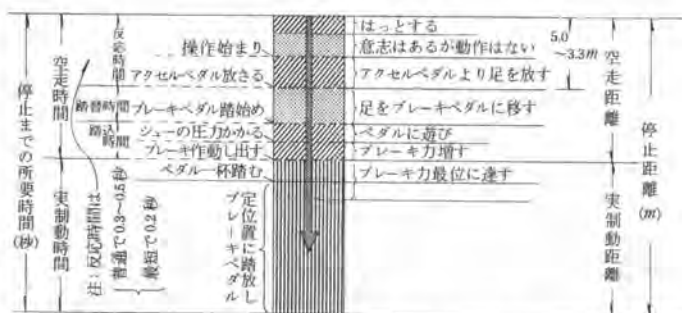 停止までの所要時間(秒)
空走時間
実制動時間
反応時間
踏替時間
踏込時間
注:反応時間は
普通で0.3〜0.5秒
最短で0.2秒
操作始まり
アクセルペダル放さる
ブレーキペダル踏始め
シューの圧力かかる
ブレーキ作動し出す
ペダル一杯踏む
定位置に踏放し
ブレーキペダル
はっとする
意志はあるが動作はない
アクセルペダルより足を放す
足をブレーキペダルに移す
ペダルに遊び
ブレーキ力増す
ブレーキ力最位に達す
5.0
〜3.3m
空走距離
実制動距離
停止距離(m)